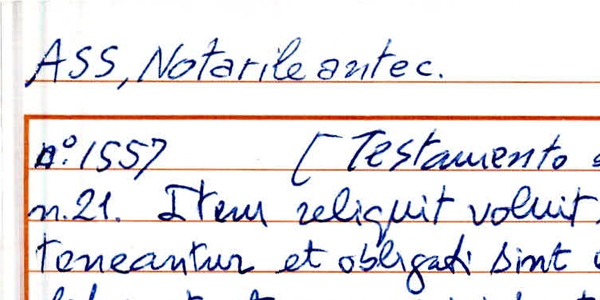 ASS, Notarile antec.
n.º 1557 [Testamento
n. 21. Item reliquit voluit
teneantur et obligati sint